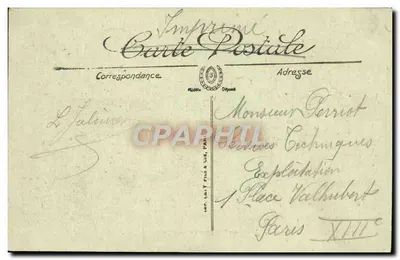 Imprimé
Carte Postale
Correspondance
Adresse
Modèle Déposé
Monsieur Perriot
Services Techniques
Exploitation
1 Place Valhubert
Paris XIIIe
CPAPHIL